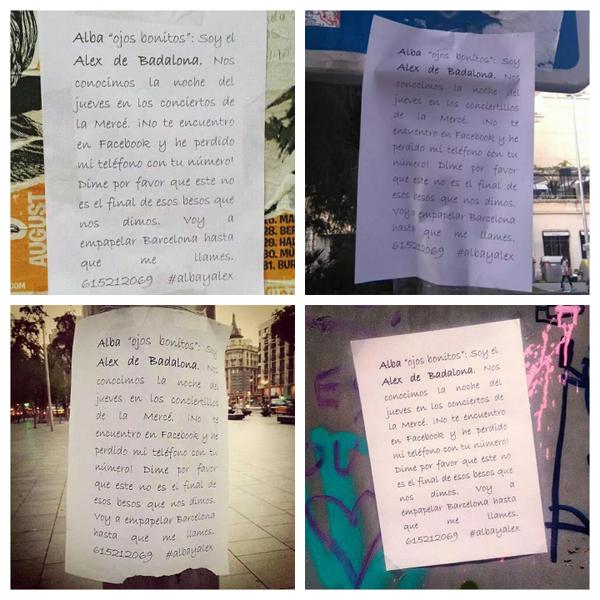 Alba "ojos bonitos": Soy el
Alex de Badalona. Nos
conocimos la noche del
jueves en los conciertos de
la Mercé. ¡No te encuentro
en Facebook y he perdido
mi teléfono con tu número!
Dime por favor que este no
es el final de esos besos que
nos dimos. Voy a
empapelar Barcelona hasta
que me llames.
615212069 #albayalex
AUGUST
28. BER
29. HAL
30. MÜ
31. BUR
Alba "ojos bonitos": Soy
Alex de Badalona. Nos
conocimos la noche del
jueves en los conciertillos
de la Mercé. ¡No te
encuentro en Facebook y he
perdido mi teléfono con tu
número! Dime por favor
que este no es el final de
esos besos que nos dimos.
Voy a empapelar Barcelona
hasta que me llames.
615212069 #albayalex
Alba "ojos bonitos": Soy
Alex de Badalona. Nos
conocimos la noche del
jueves en los conciertillos
de la Mercé. ¡No te
encuentro en Facebook y he
perdido mi teléfono con tu
número! Dime por favor
que este no es el final de
esos besos que nos dimos.
Voy a empapelar Barcelona
hasta que me llames.
615212069 #albayalex
Alba "ojos bonitos": Soy el
Alex de Badalona. Nos
conocimos la noche del
jueves en los conciertos de
la Mercé. ¡No te encuentro
en Facebook y he perdido
mi teléfono con tu número!
Dime por favor que este no
es el final de esos besos que
nos dimos. Voy a
empapelar Barcelona hasta
que me llames.
615212069 #albayalex